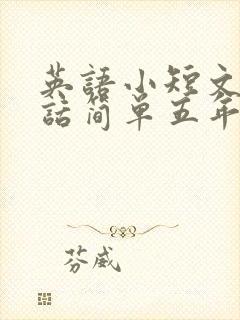 英語小短文
話简单五年
芬威